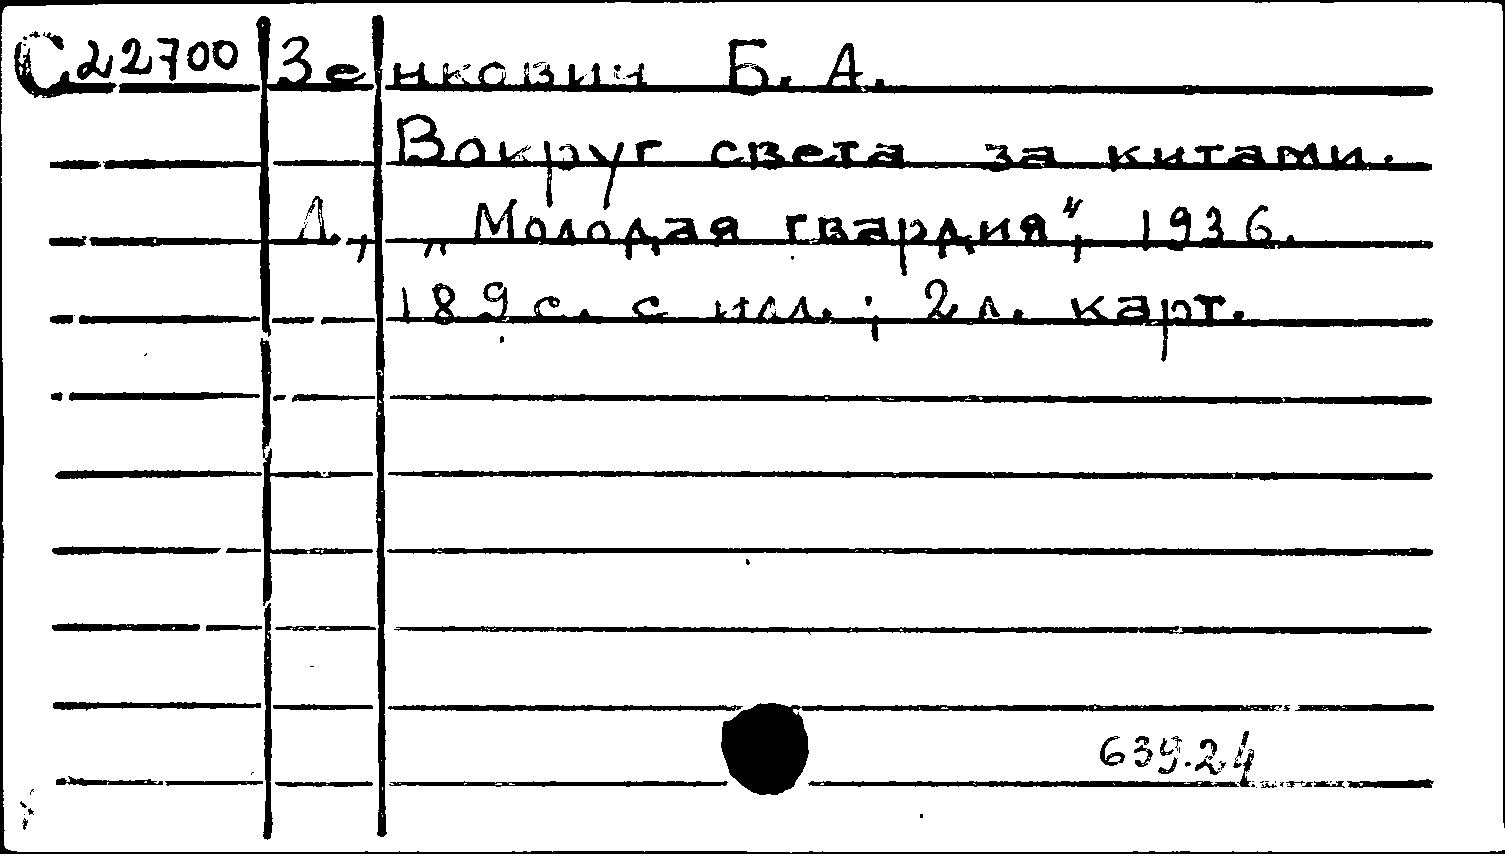 С22700 Зенкович Б. А.
Вокруг света за китами.
Л., „Молодая гвардия“, 1936.
189 с. с илл.; 2 л. карт.
639.24